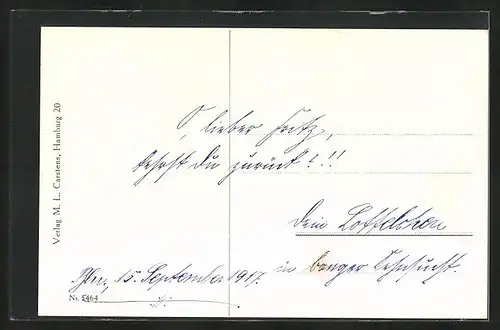 Verlag M. L. Carstens, Hamburg 20
O, lieber Fritz,
kehrst Du zurück?!!
Dein
in banger Sehnsucht.
15. September 1917.
Nr. 5464